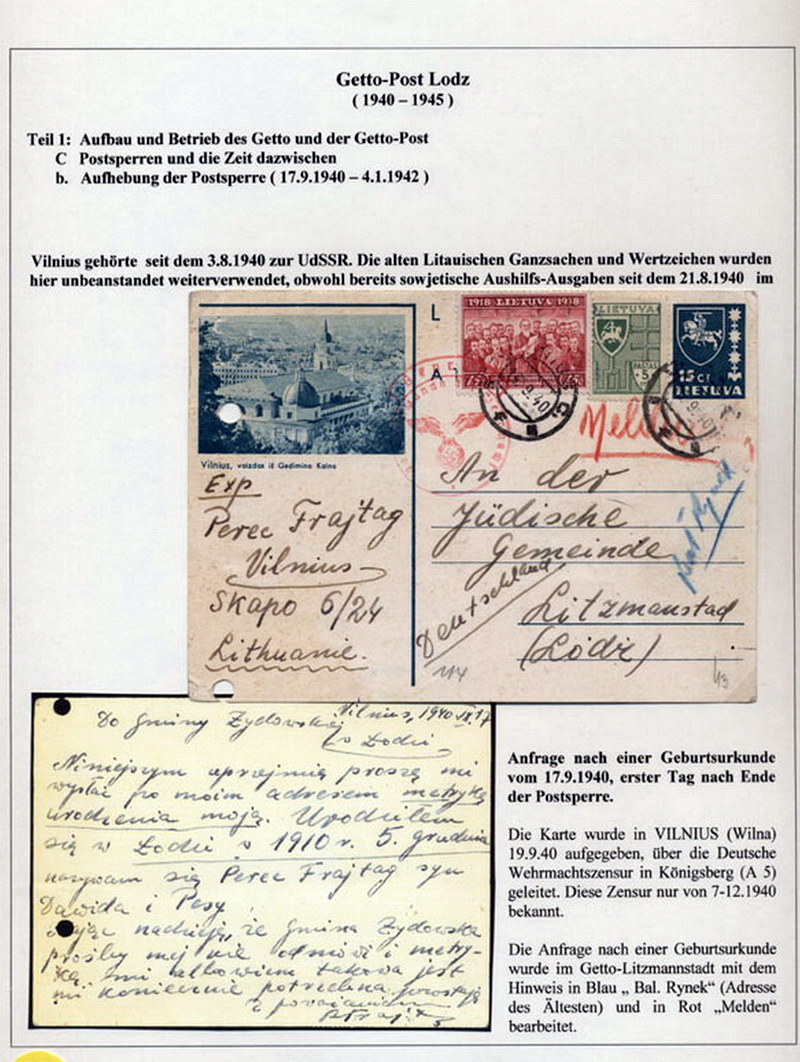 Getto-Post Lodz
( 1940 – 1945 )
Teil 1: Aufbau und Betrieb des Getto und der Getto-Post
C Postsperren und die Zeit dazwischen
b. Aufhebung der Postsperre ( 17.9.1940 – 4.1.1942 )
Vilnius gehörte seit dem 3.8.1940 zur UdSSR. Die alten Litauischen Ganzsachen und Wertzeichen wurden
hier unbeanstandet weiterverwendet, obwohl bereits sowjetische Aushilfs-Ausgaben seit dem 21.8.1940 im
L
A
1918 LIETUVA 1918
LIETUVA
PAŠTAS
5
15 CT
LIETUVA
9.40
Melden
Vilnius, vaizdas iš Gedimino Kalno
Exp
Perec Frajtag
Vilnius
Skapo 6/24
Lithuanie.
An der
Jüdische
Gemeinde
Litzmanstad
(Lodz)
Deutschland
Bal Rynek
43
Vilnius, 1940 IX 17
Do Gminy Żydowskiej
w Łodzi
Niniejszym uprzejmię proszę mi
wysłać po moim adresem metrykę
urodzenia moją. Urodziłem
się w Łodzi w 1910 r. 5. grudnia
nazywam się Perec Frajtag syn
Dawida i Pesy
Mając nadzieję, że Gmina Żydowska
prośby mej nie odmówi i metry-
kę mi albowiem takowa jest
mi koniecznie potrzebna, pozostaję
z poważaniem
P. Frajtag
Anfrage nach einer Geburtsurkunde
vom 17.9.1940, erster Tag nach Ende
der Postsperre.
Die Karte wurde in VILNIUS (Wilna)
19.9.40 aufgegeben, über die Deutsche
Wehrmachtszensur in Königsberg (A 5)
geleitet. Diese Zensur nur von 7-12.1940
bekannt.
Die Anfrage nach einer Geburtsurkunde
wurde im Getto-Litzmannstadt mit dem
Hinweis in Blau „ Bal. Rynek“ (Adresse
des Ältesten) und in Rot „Melden“
bearbeitet.